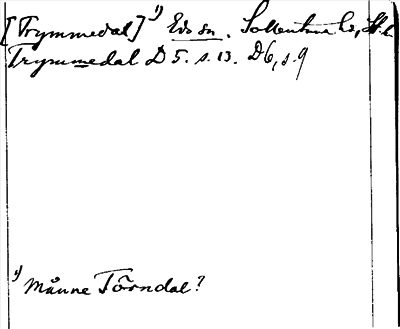 [Trymmedal]¹⁾ Eds sn. Sollentuna hd, St. l.
Trymmedal D 5. s. 13. D6, s. 9
¹⁾ Månne Törndal?